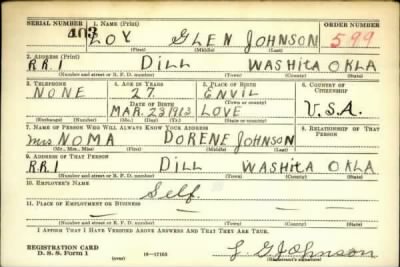 SERIAL NUMBER 1. NAME (Print) ORDER NUMBER
403 LOY GLEN JOHNSON 599
(First) (Middle) (Last)
2. ADDRESS (Print)
RR1 DILL WASHITA OKLA
(Number and street or R. F. D. number) (Town) (County) (State)
3. TELEPHONE 4. AGE IN YEARS 5. PLACE OF BIRTH 6. COUNTRY OF CITIZENSHIP
NONE 27 ENVIL
DATE OF BIRTH (Town or county)
MAR. 23 1913 LOVE U.S.A.
(Exchange) (Number) (Mo.) (Day) (Yr.) (State or country)
7. NAME OF PERSON WHO WILL ALWAYS KNOW YOUR ADDRESS 8. RELATIONSHIP OF THAT PERSON
Mrs NOMA DORENE JOHNSON
(Mr., Mrs., Miss) (First) (Middle) (Last)
9. ADDRESS OF THAT PERSON
RR1 DILL WASHITA OKLA
(Number and street or R. F. D. number) (Town) (County) (State)
10. EMPLOYER'S NAME
Self.
11. PLACE OF EMPLOYMENT OR BUSINESS
(Number and street or R. F. D. number) (Town) (County) (State)
I AFFIRM THAT I HAVE VERIFIED ABOVE ANSWERS AND THAT THEY ARE TRUE.
REGISTRATION CARD
D. S. S. Form 1 16—17105 L. G. Johnson
(Registrant's signature)